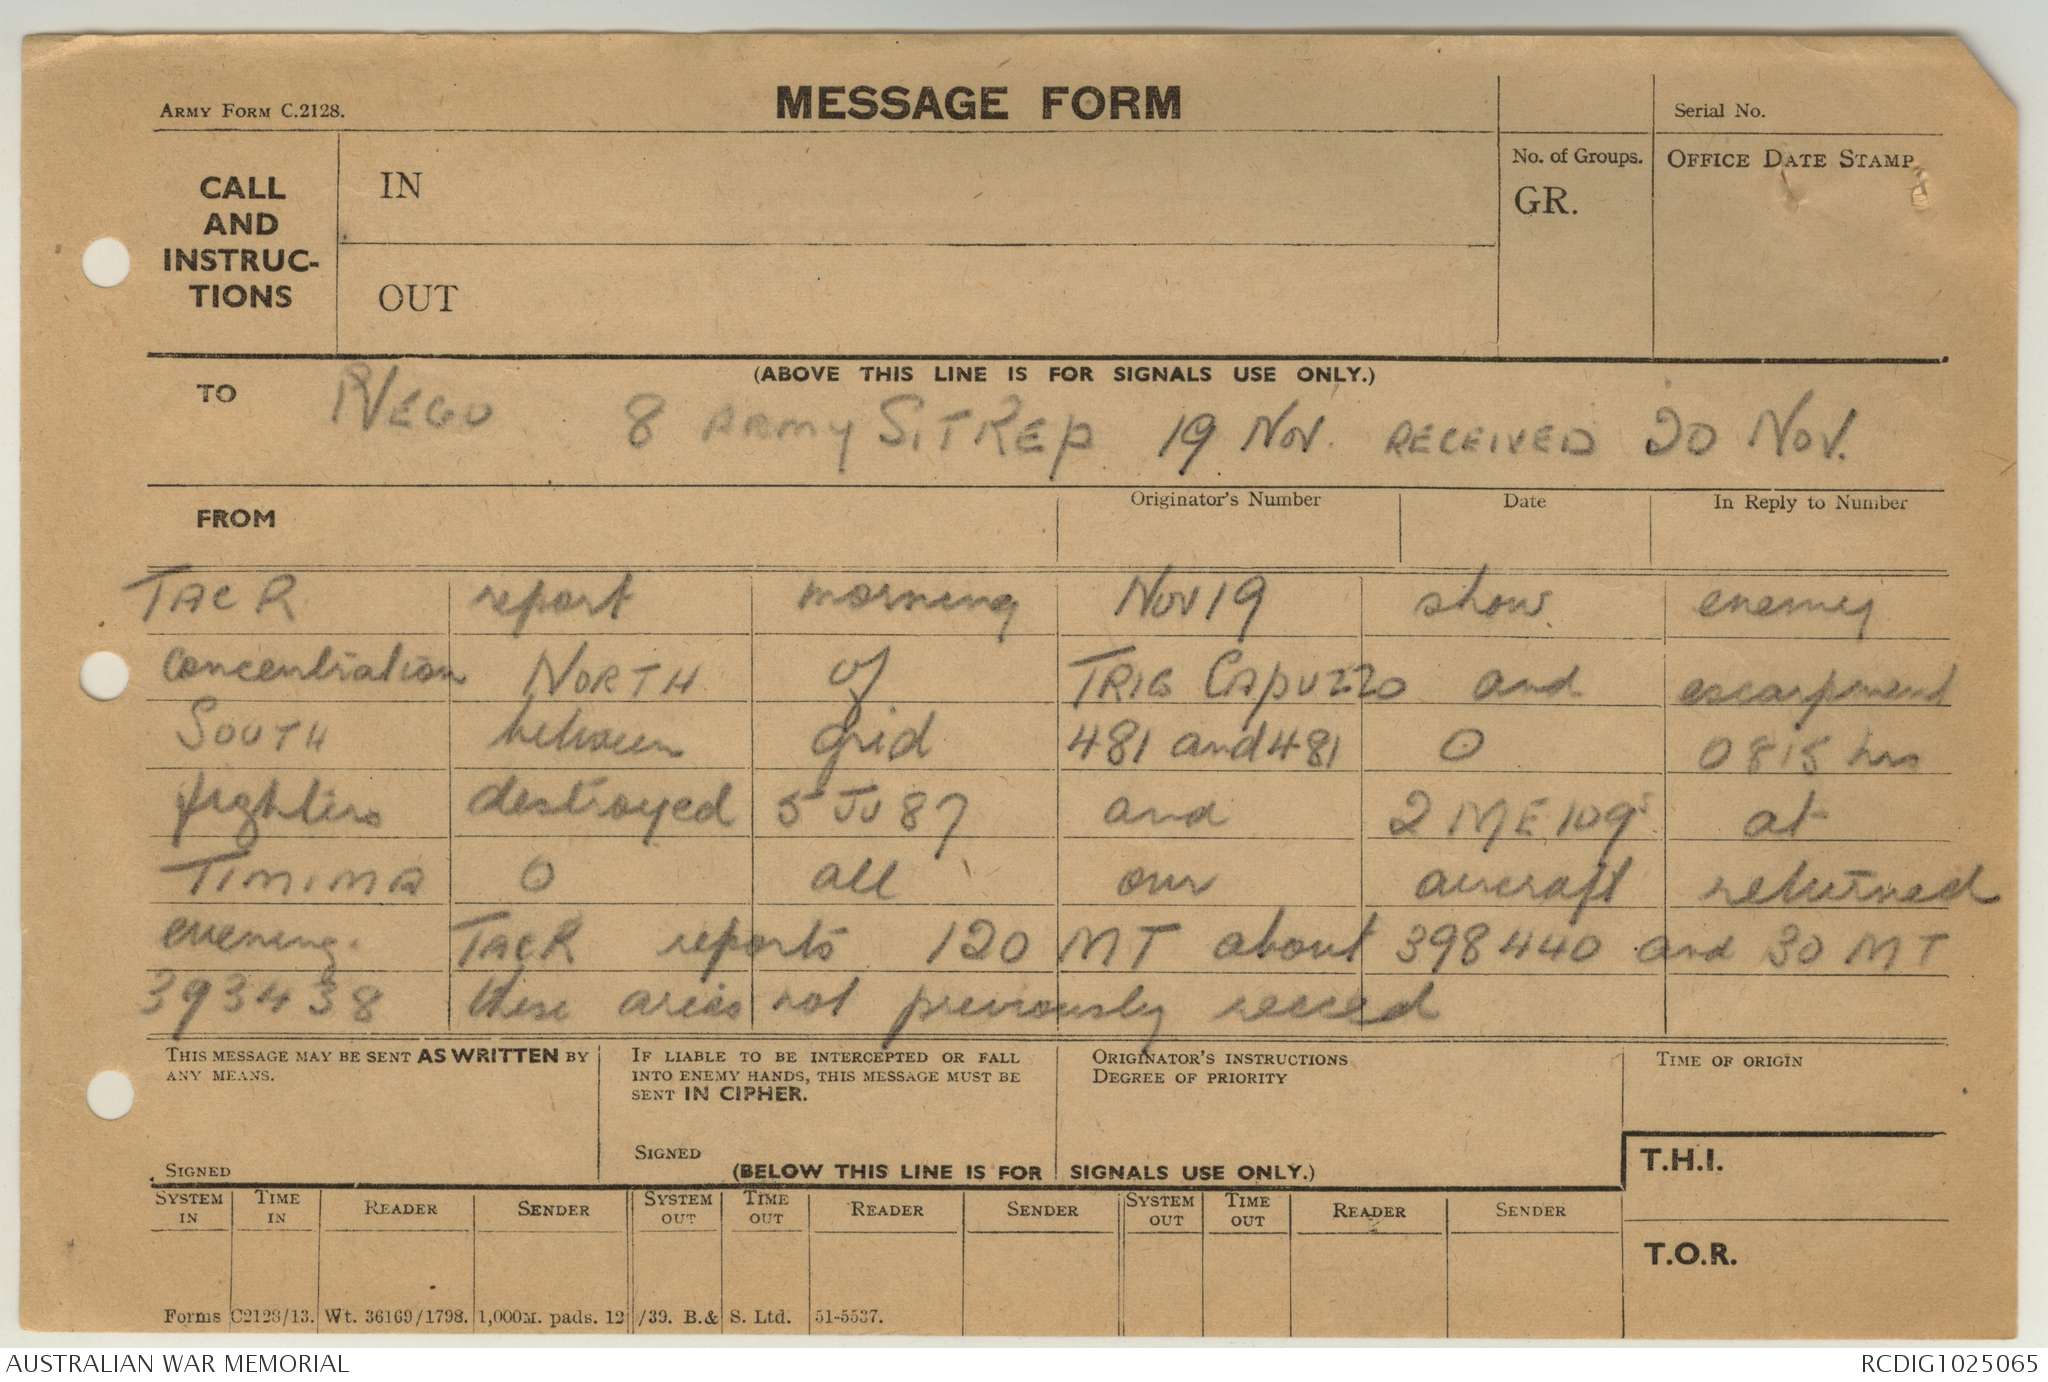 ARMY FORM C.2128.
MESSAGE FORM
Serial No.
CALL
AND
INSTRUC-
TIONS
IN
OUT
No. of Groups.
GR.
OFFICE DATE STAMP
(ABOVE THIS LINE IS FOR SIGNALS USE ONLY.)
TO
8 ARMY SITREP 19 Nov. RECEIVED 20 Nov.
FROM
Originator's Number
Date
In Reply to Number
TAC R report morning Nov 19 show enemy
concentration NORTH of TRIG CAPUZZO and escarpment
SOUTH between grid 481 and 481 O 0815 hrs
fighters destroyed 5 JU 87 and 2 ME 109s at
TIMIMA O all our aircraft returned
evening. TACR reports 120 MT about 398440 and 30 MT
393438 these areas not previously recced
THIS MESSAGE MAY BE SENT AS WRITTEN BY
ANY MEANS.
SIGNED
IF LIABLE TO BE INTERCEPTED OR FALL
INTO ENEMY HANDS, THIS MESSAGE MUST BE
SENT IN CIPHER.
SIGNED
ORIGINATOR'S INSTRUCTIONS
DEGREE OF PRIORITY
TIME OF ORIGIN
(BELOW THIS LINE IS FOR SIGNALS USE ONLY.)
T.H.I.
T.O.R.
SYSTEM IN TIME IN READER SENDER SYSTEM OUT TIME OUT READER SENDER SYSTEM OUT TIME OUT READER SENDER
Forms C2128/13. Wt. 36169/1798. 1,000M. pads. 12/39. B.& S. Ltd. 51-5537.
AUSTRALIAN WAR MEMORIAL
RCDIG1025065